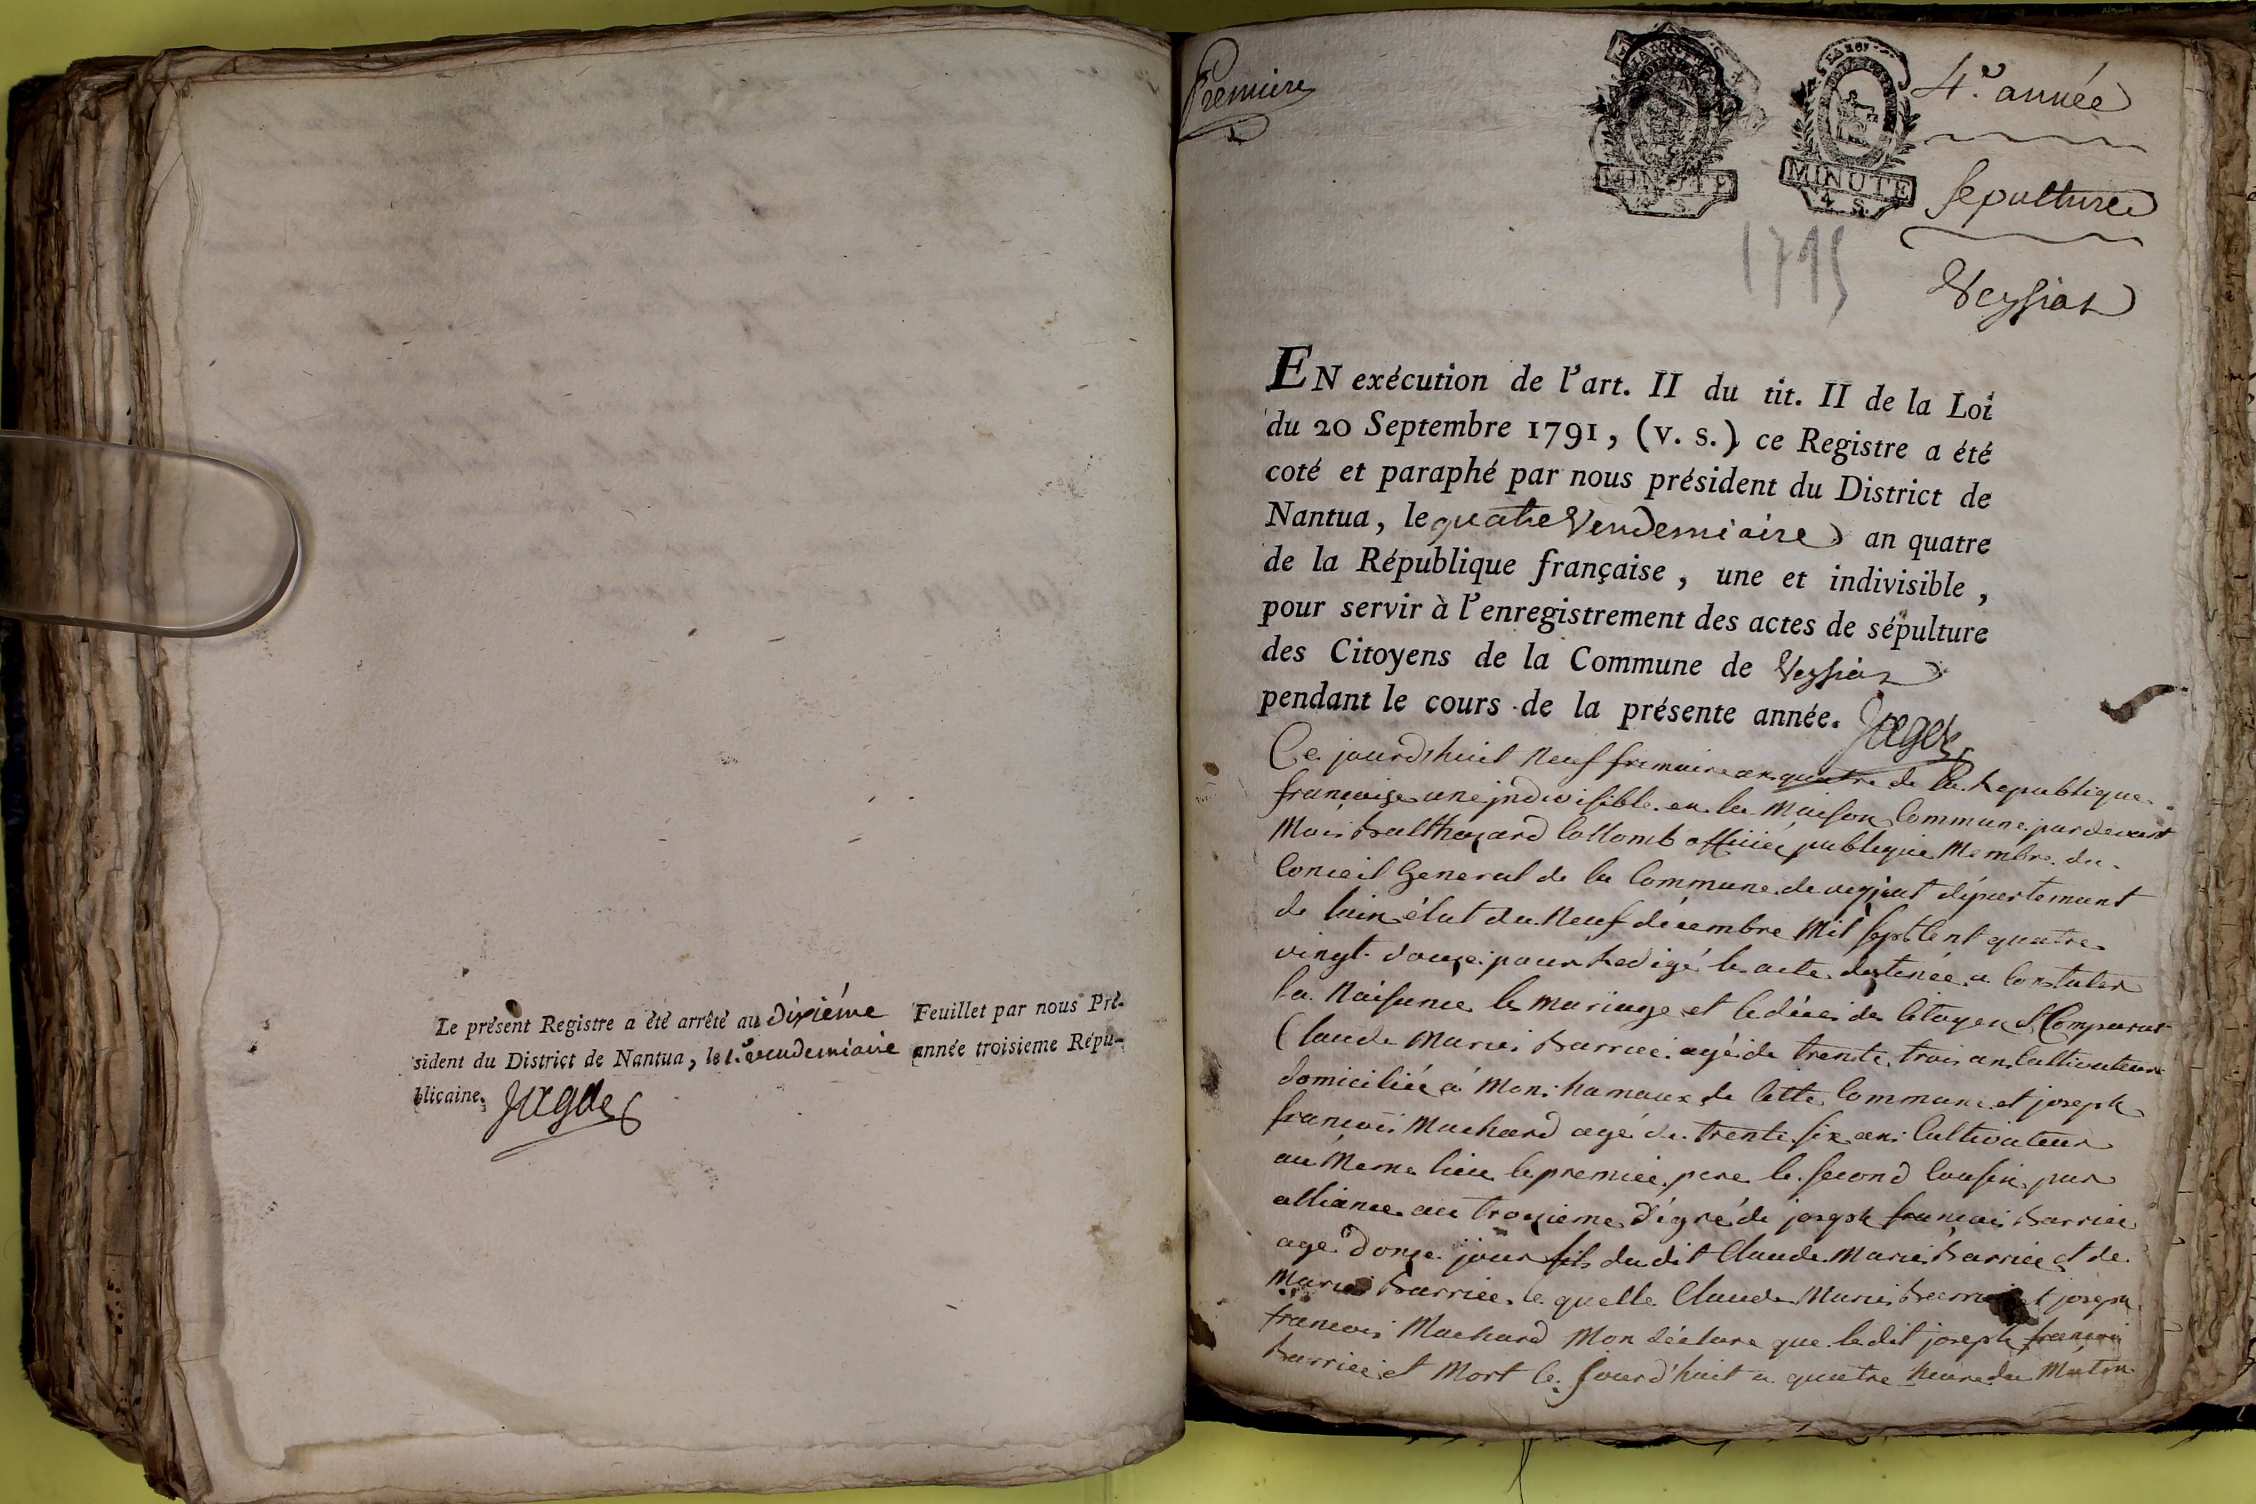 Le présent Registre a été arrêté au Dixiéme Feuillet par nous Pré-
sident du District de Nantua, le 1.er vendemiaire année troisieme Répu-
blicaine. Jagot
Premiere
4.e année
MINUTE
4 S.
MINUTE
4 S.
Sepultures
1795
Veyziat
EN exécution de l'art. II du tit. II de la Loi
du 20 Septembre 1791, (v. s.) ce Registre a été
coté et paraphé par nous président du District de
Nantua, le quatre Vendemiaire an quatre
de la République française, une et indivisible,
pour servir à l'enregistrement des actes de sépulture
des Citoyens de la Commune de Veyziat
pendant le cours de la présente année. Jagot
Ce jourd'huit neuf frimaire an quatre de la Republique
francaise une jndivisible en la Maison Commune pardevant
Moi balthazard Collomb officiée publique Membre du
Conseil General de la Commune de veyziat département
de lain élut du Neuf décembre Mil sept Cent quatre
vingt douze pour Redigé les acte destinée a Constater
la Naisance le mariage et le décéi des Citoyen S Comparut
Claude Marie barriee agé de trente trois ans Cultivateur
domiciliée a Mons hamaux de Cette Commune et joseph
francois Machard agé de trente six ans Cultivateur
au Meme lieu le premiée pere le second Cousin par
alliance au troizieme dégré de joseph francois barriee
age donze jour fils du dit Claude Marie barriee et de
Marie barriee le quelle Claude Marie barriee et joseph
francois Machard Mon déclare que le dit joseph francois
barriee et Mort Ce jourd'huit a quatre heure du Matin